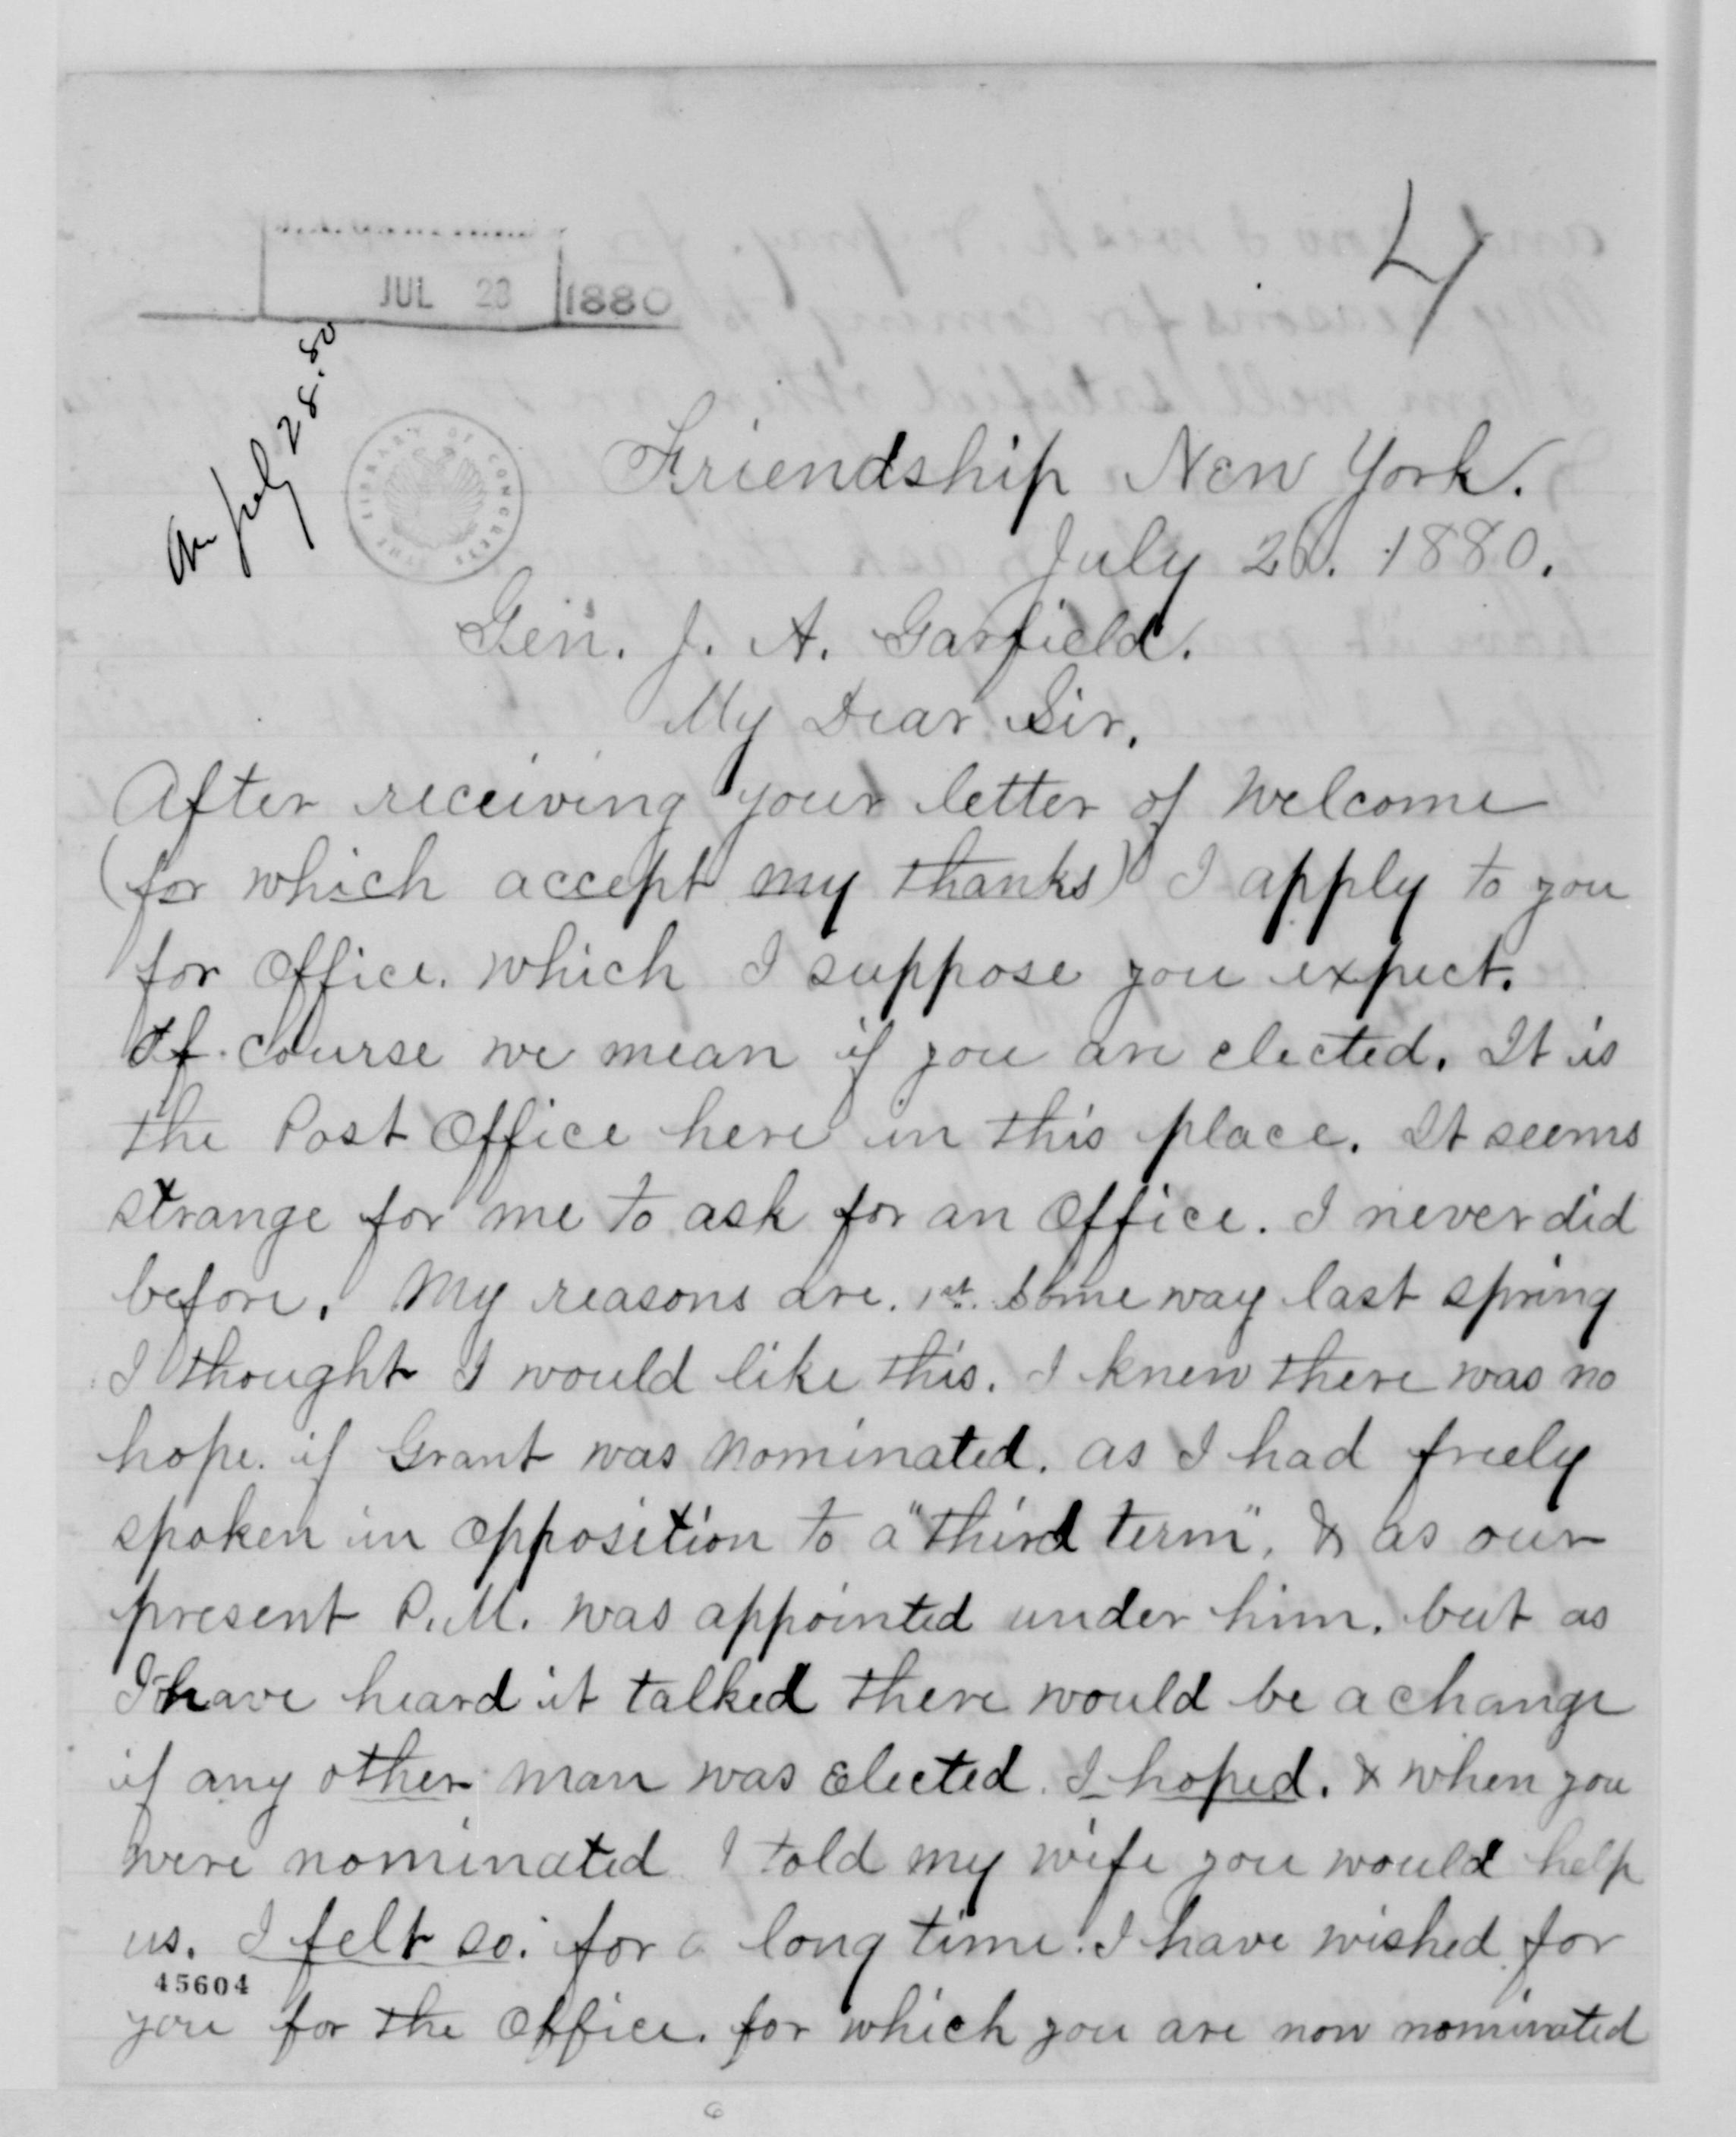 4
JUL 28 1880
An July 28.80
THE LIBRARY OF CONGRESS
Friendship New York.
July 26. 1880.
Gen. J. A. Garfield.
My Dear Sir,
After receiving your letter of Welcome
(for which accept my thanks) I apply to you
for Office. which I suppose you expect.
Of course we mean if you are elected. It is
the Post Office here in this place. It seems
strange for me to ask for an Office. I never did
before. My reasons are. 1st. Some way last spring
I thought I would like this. I knew there was no
hope. if Grant was nominated. as I had freely
spoken in opposition to a "third term", & as our
present P.M. was appointed under him. but as
I have heard it talked there would be a change
if any other man was Elected. I hoped. & when you
were nominated I told my wife you would help
us. I felt so. for a long time. I have wished for
45604
you for the Office. for which you are now nominated
6